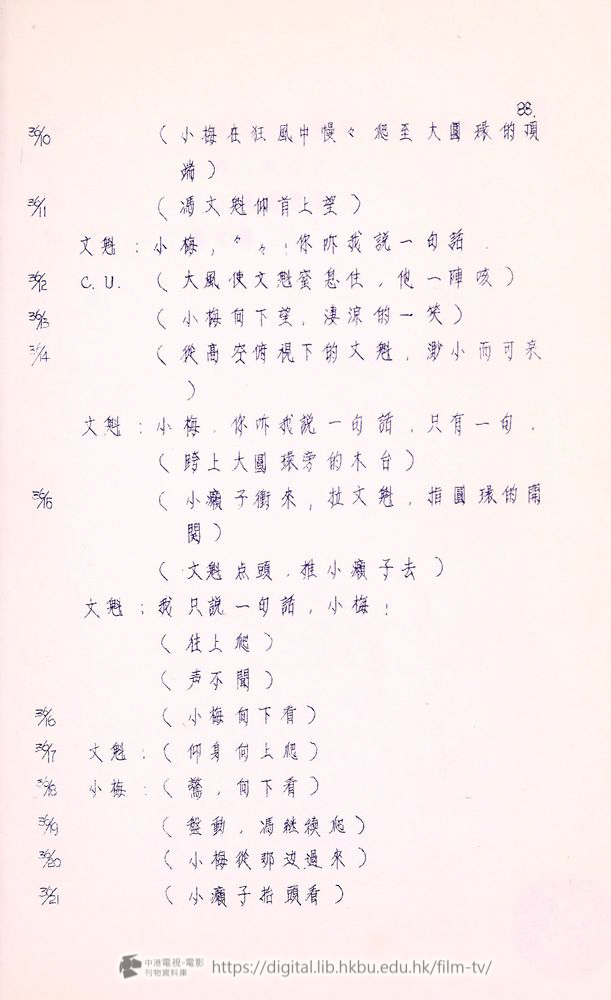 88.
36/10 （小梅在狂風中慢々爬至大圓環的頂
端）
36/11 （馮文魁仰首上望）
文魁：小梅，々々！你听我說一句話．
36/12 C.U. （大風使文魁窒息住，他一陣咳）
36/13 （小梅向下望，凄涼的一笑）
36/14 （從高空俯視下的文魁，渺小而可哀
）
文魁：小梅．你听我說一句話，只有一句．
（跨上大圓環旁的木台）
36/15 （小癩子衝來，拉文魁，指圓環的開
関）
（文魁点頭．推小癩子去）
文魁：我只說一句話，小梅！
（往上爬）
（声不聞）
36/16 （小梅向下看）
36/17 文魁：（仰身向上爬）
36/18 小梅：（驚，向下看）
36/19 （盤動，馮継續爬）
36/20 （小梅從那边過來）
36/21 （小癩子抬頭看）
中港電視·電影
刊物資料庫 https://digital.lib.hkbu.edu.hk/film-tv/